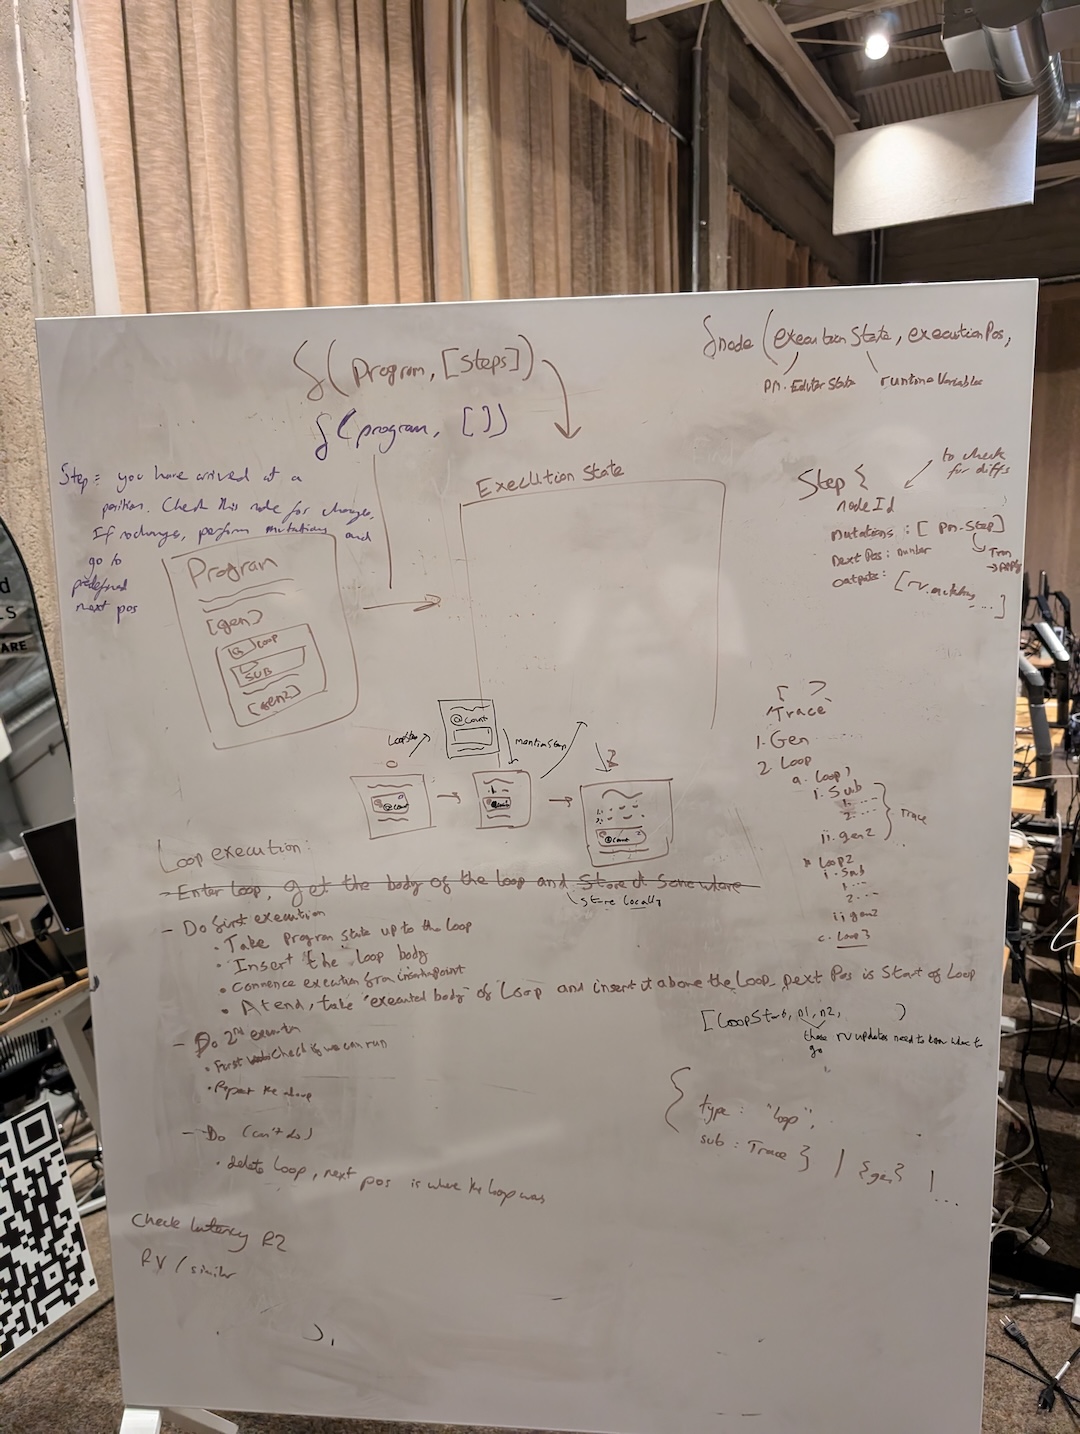 f(Program, [Steps])
f(program, [])
fnode(executionState, executionPos,
pm.EditorState
runtimeVariables
Step = you have arrived at a
position. Check this node for changes.
If no changes, perform mutations and
go to
predefined
next pos
Program
[gen]
Loop
SUB
[gen2]
Execution State
to check
for diffs
Step {
nodeId
mutations : [ pm.Step]
Next Pos : number
outputs : [rv.
...]
→ apply
@count
LoopStep
mention step
@count
@count
[ ]
Trace
1. Gen
2. Loop
a. Loop1
i. Sub
1. ...
2. ...
ii. gen2
Trace
Loop2
i. Sub
1. ...
2. ...
ii gen2
c. Loop3
Loop execution:
- Enter loop, get the body of the loop and store it somewhere
store locally
- Do first execution
• Take program state up to the loop
• Insert the loop body
• Commence execution from insertion point
• At end, take "executed body" of loop and insert it above the loop. Next Pos is start of loop
- Do 2nd execution
• First check if we can run
• Repeat the above
- Do (can't do)
• delete loop, next pos is where the loop was
[LoopStart, n1, n2, ]
these rv updates need to know where to
go
{
type : "loop",
sub : Trace } | {gen} | ...
Check latency R2
RV / similar
ARE